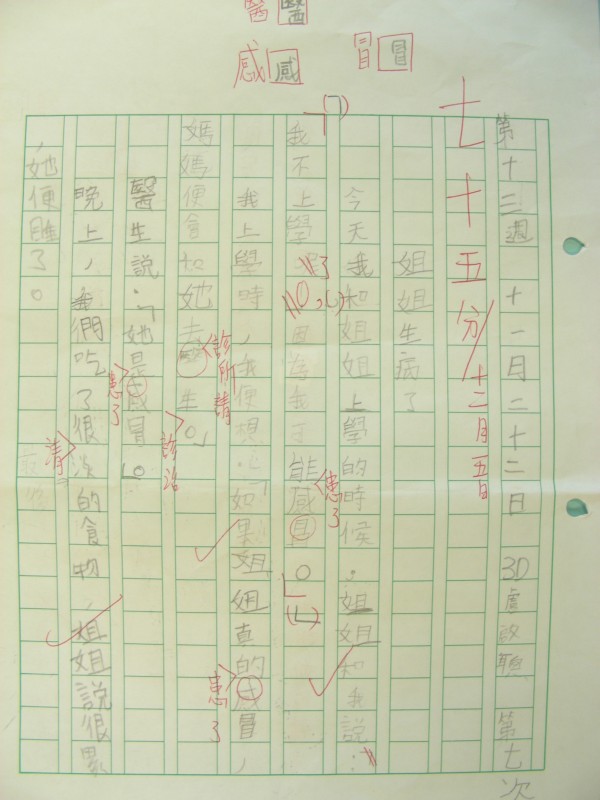 醫醫
感感
冒冒
第十三週 十一月二十二日 3D 第七次
七十五分/十二月五日
姐姐生病了
今天我和姐姐上學的時候,姐姐和我說:
我不上學呢了。因為我可能感冒。
患了
我上學時,我便想:「如果姐姐真的感冒,
患了
媽媽便會和她去醫生。」
診所請
診治
醫生說:「她是感冒。」
患了
晚上,我們吃了很淡的食物,姐姐說很累
清
,她便睡了。